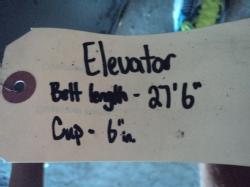 Elevator
Belt length - 27'6"
Cup - 6"in.